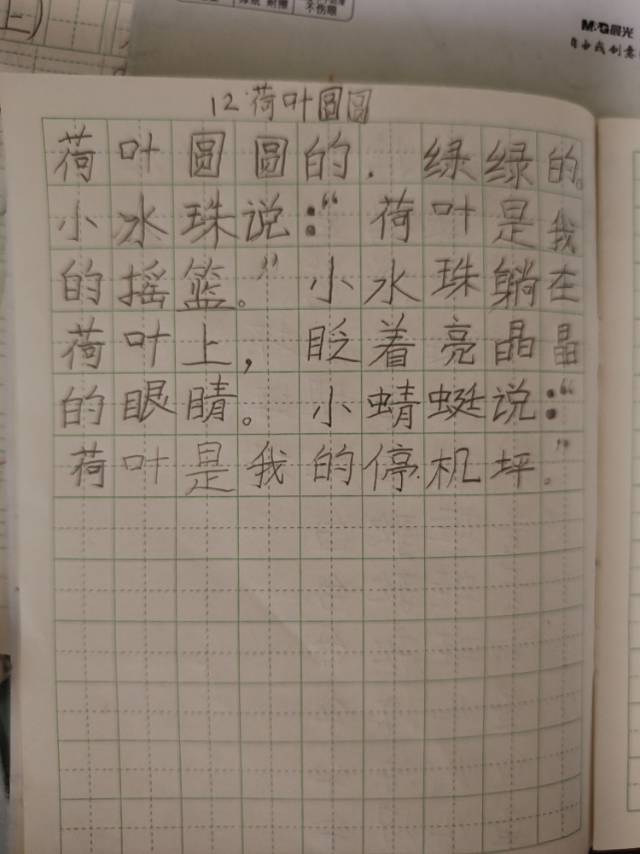 不伤眼
M&G晨光
自由我创意
12 荷叶圆圆
荷叶圆圆的.绿绿的。
小水珠说:“荷叶是我
的摇篮。”小水珠躺在
荷叶上,眨着亮晶晶
的眼睛。小蜻蜓说:“
荷叶是我的停机坪。”